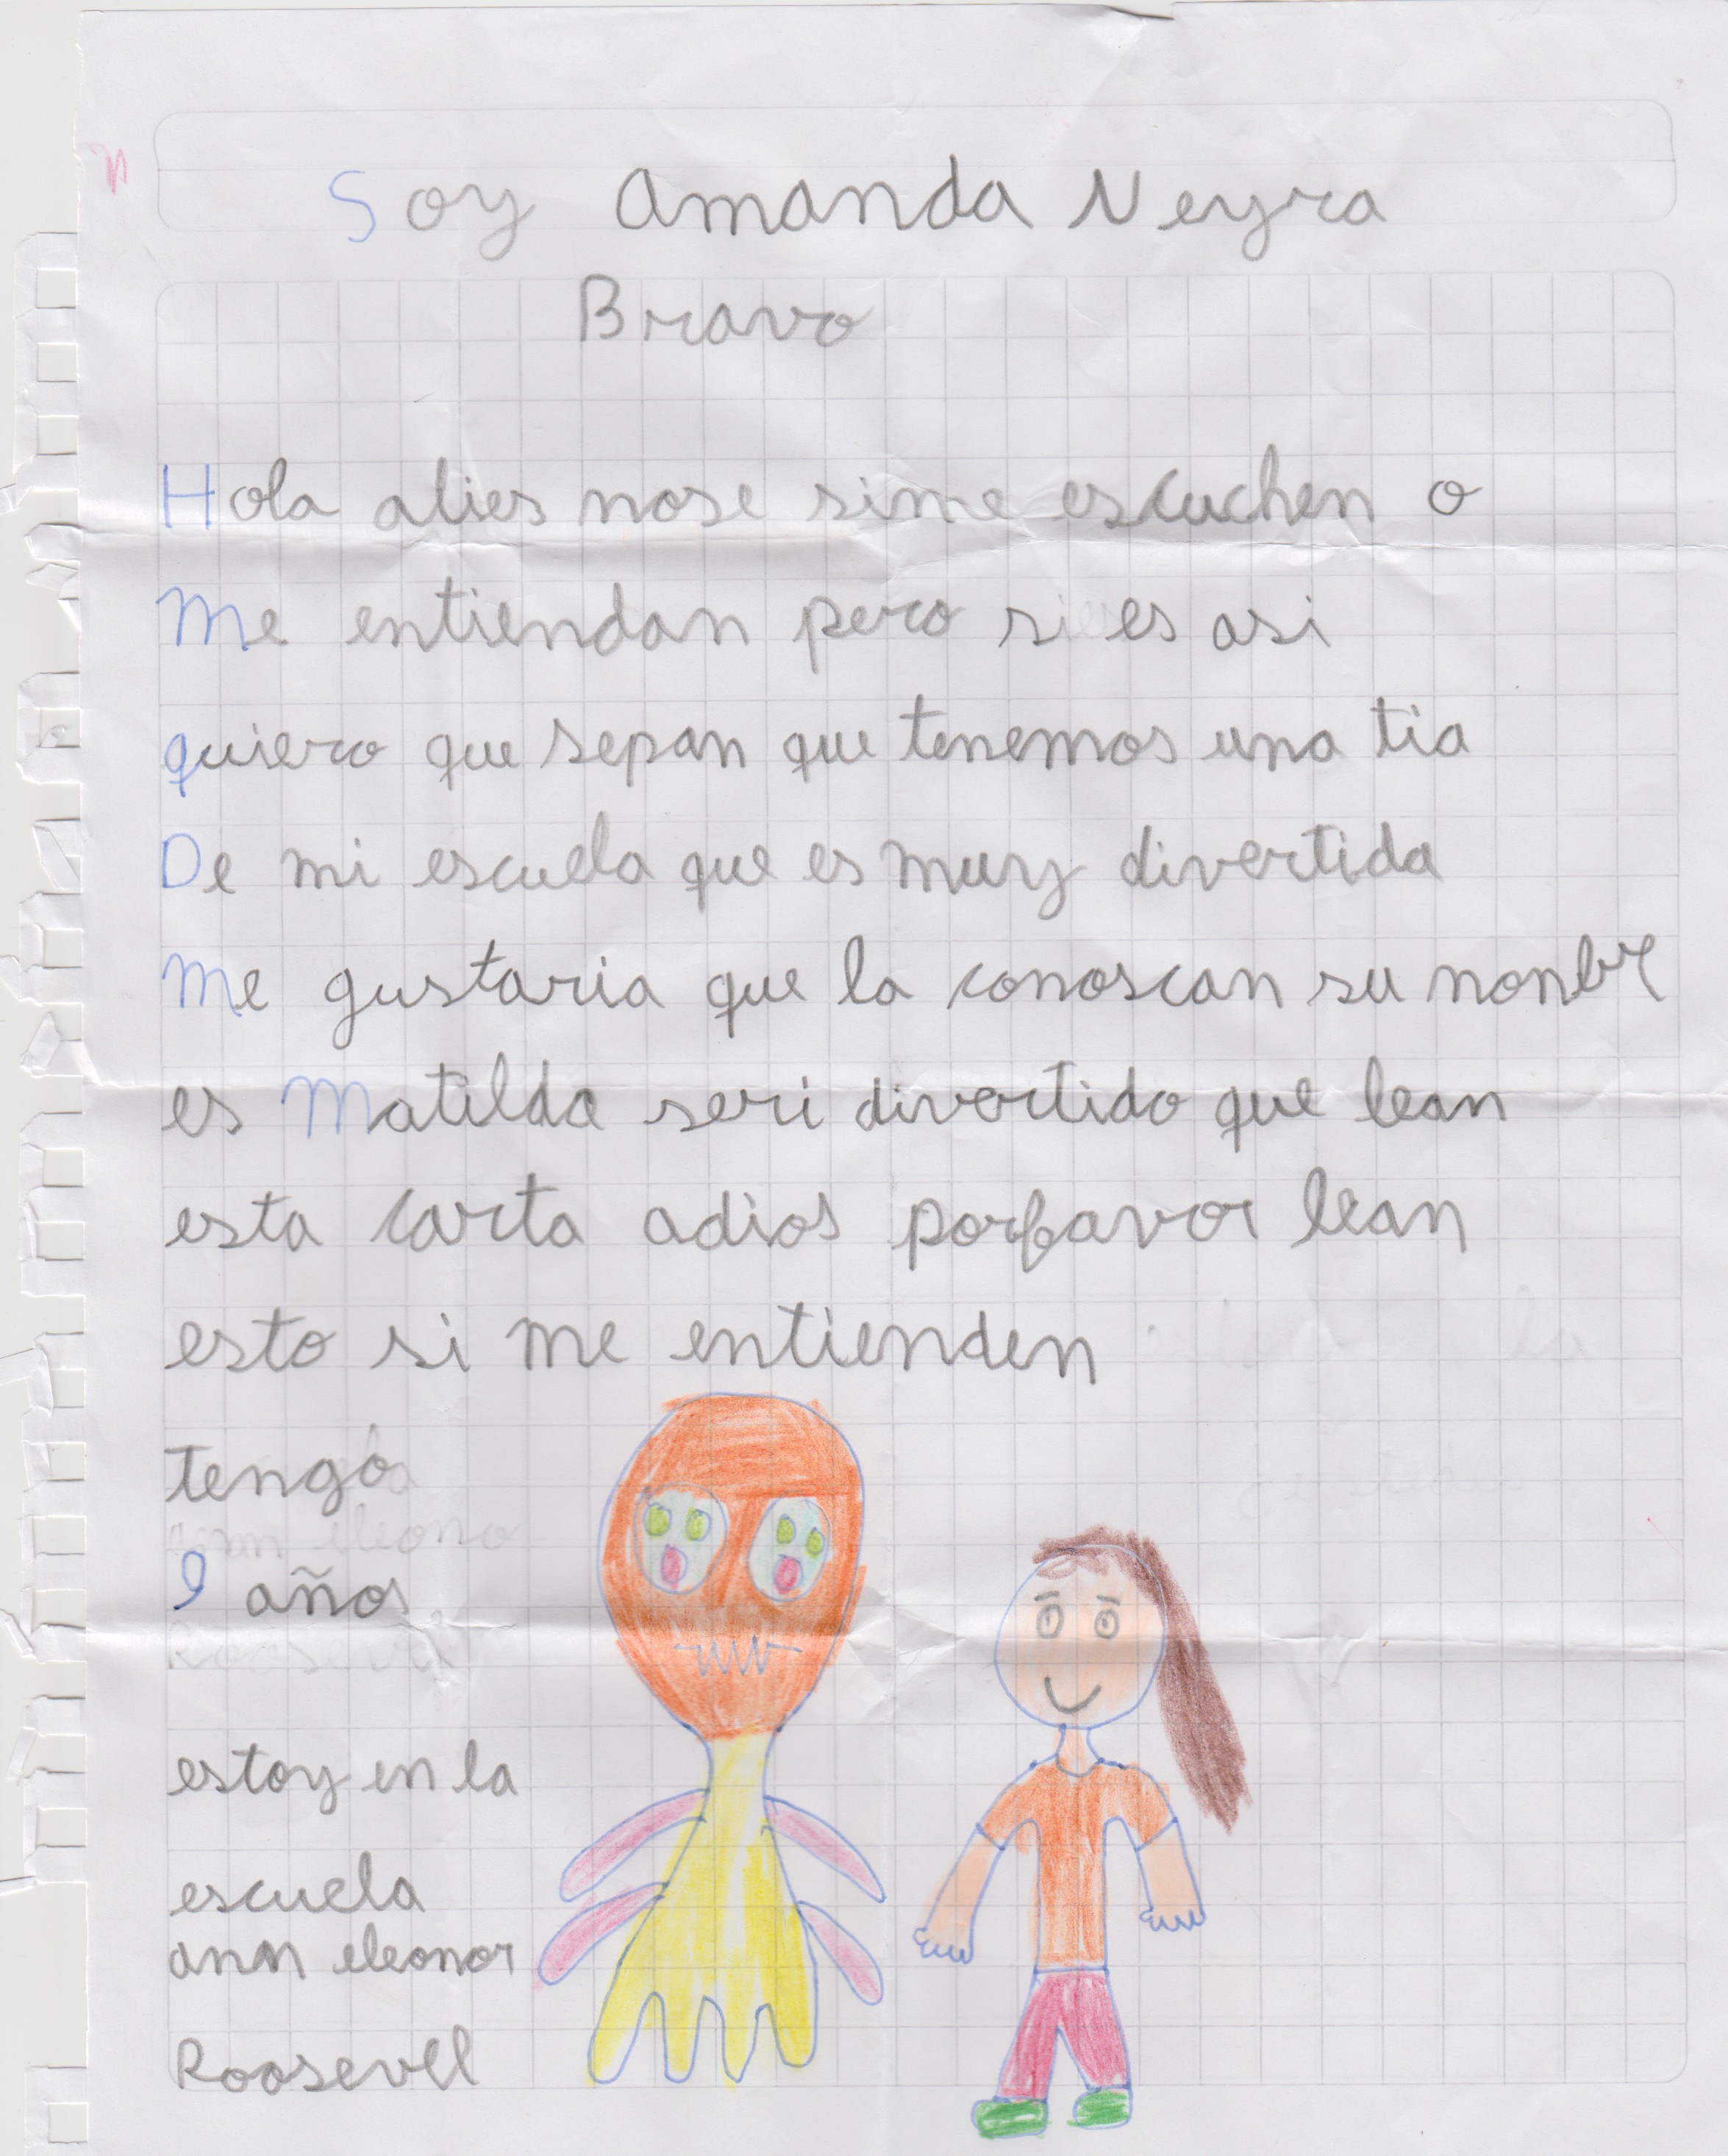 Soy Amanda Neyra
Bravo
Hola alies nose sime escuchen o
Me entiendan pero si es asi
quiero que sepan que tenemos una tia
De mi escuela que es muy divertida
Me gustaria que la conoscan su nonbre
es Matilda seri divertido que lean
esta carta adios porfavor lean
esto si me entienden
tengo
9 años
estoy en la
escuela
ann eleonor
Roosevell